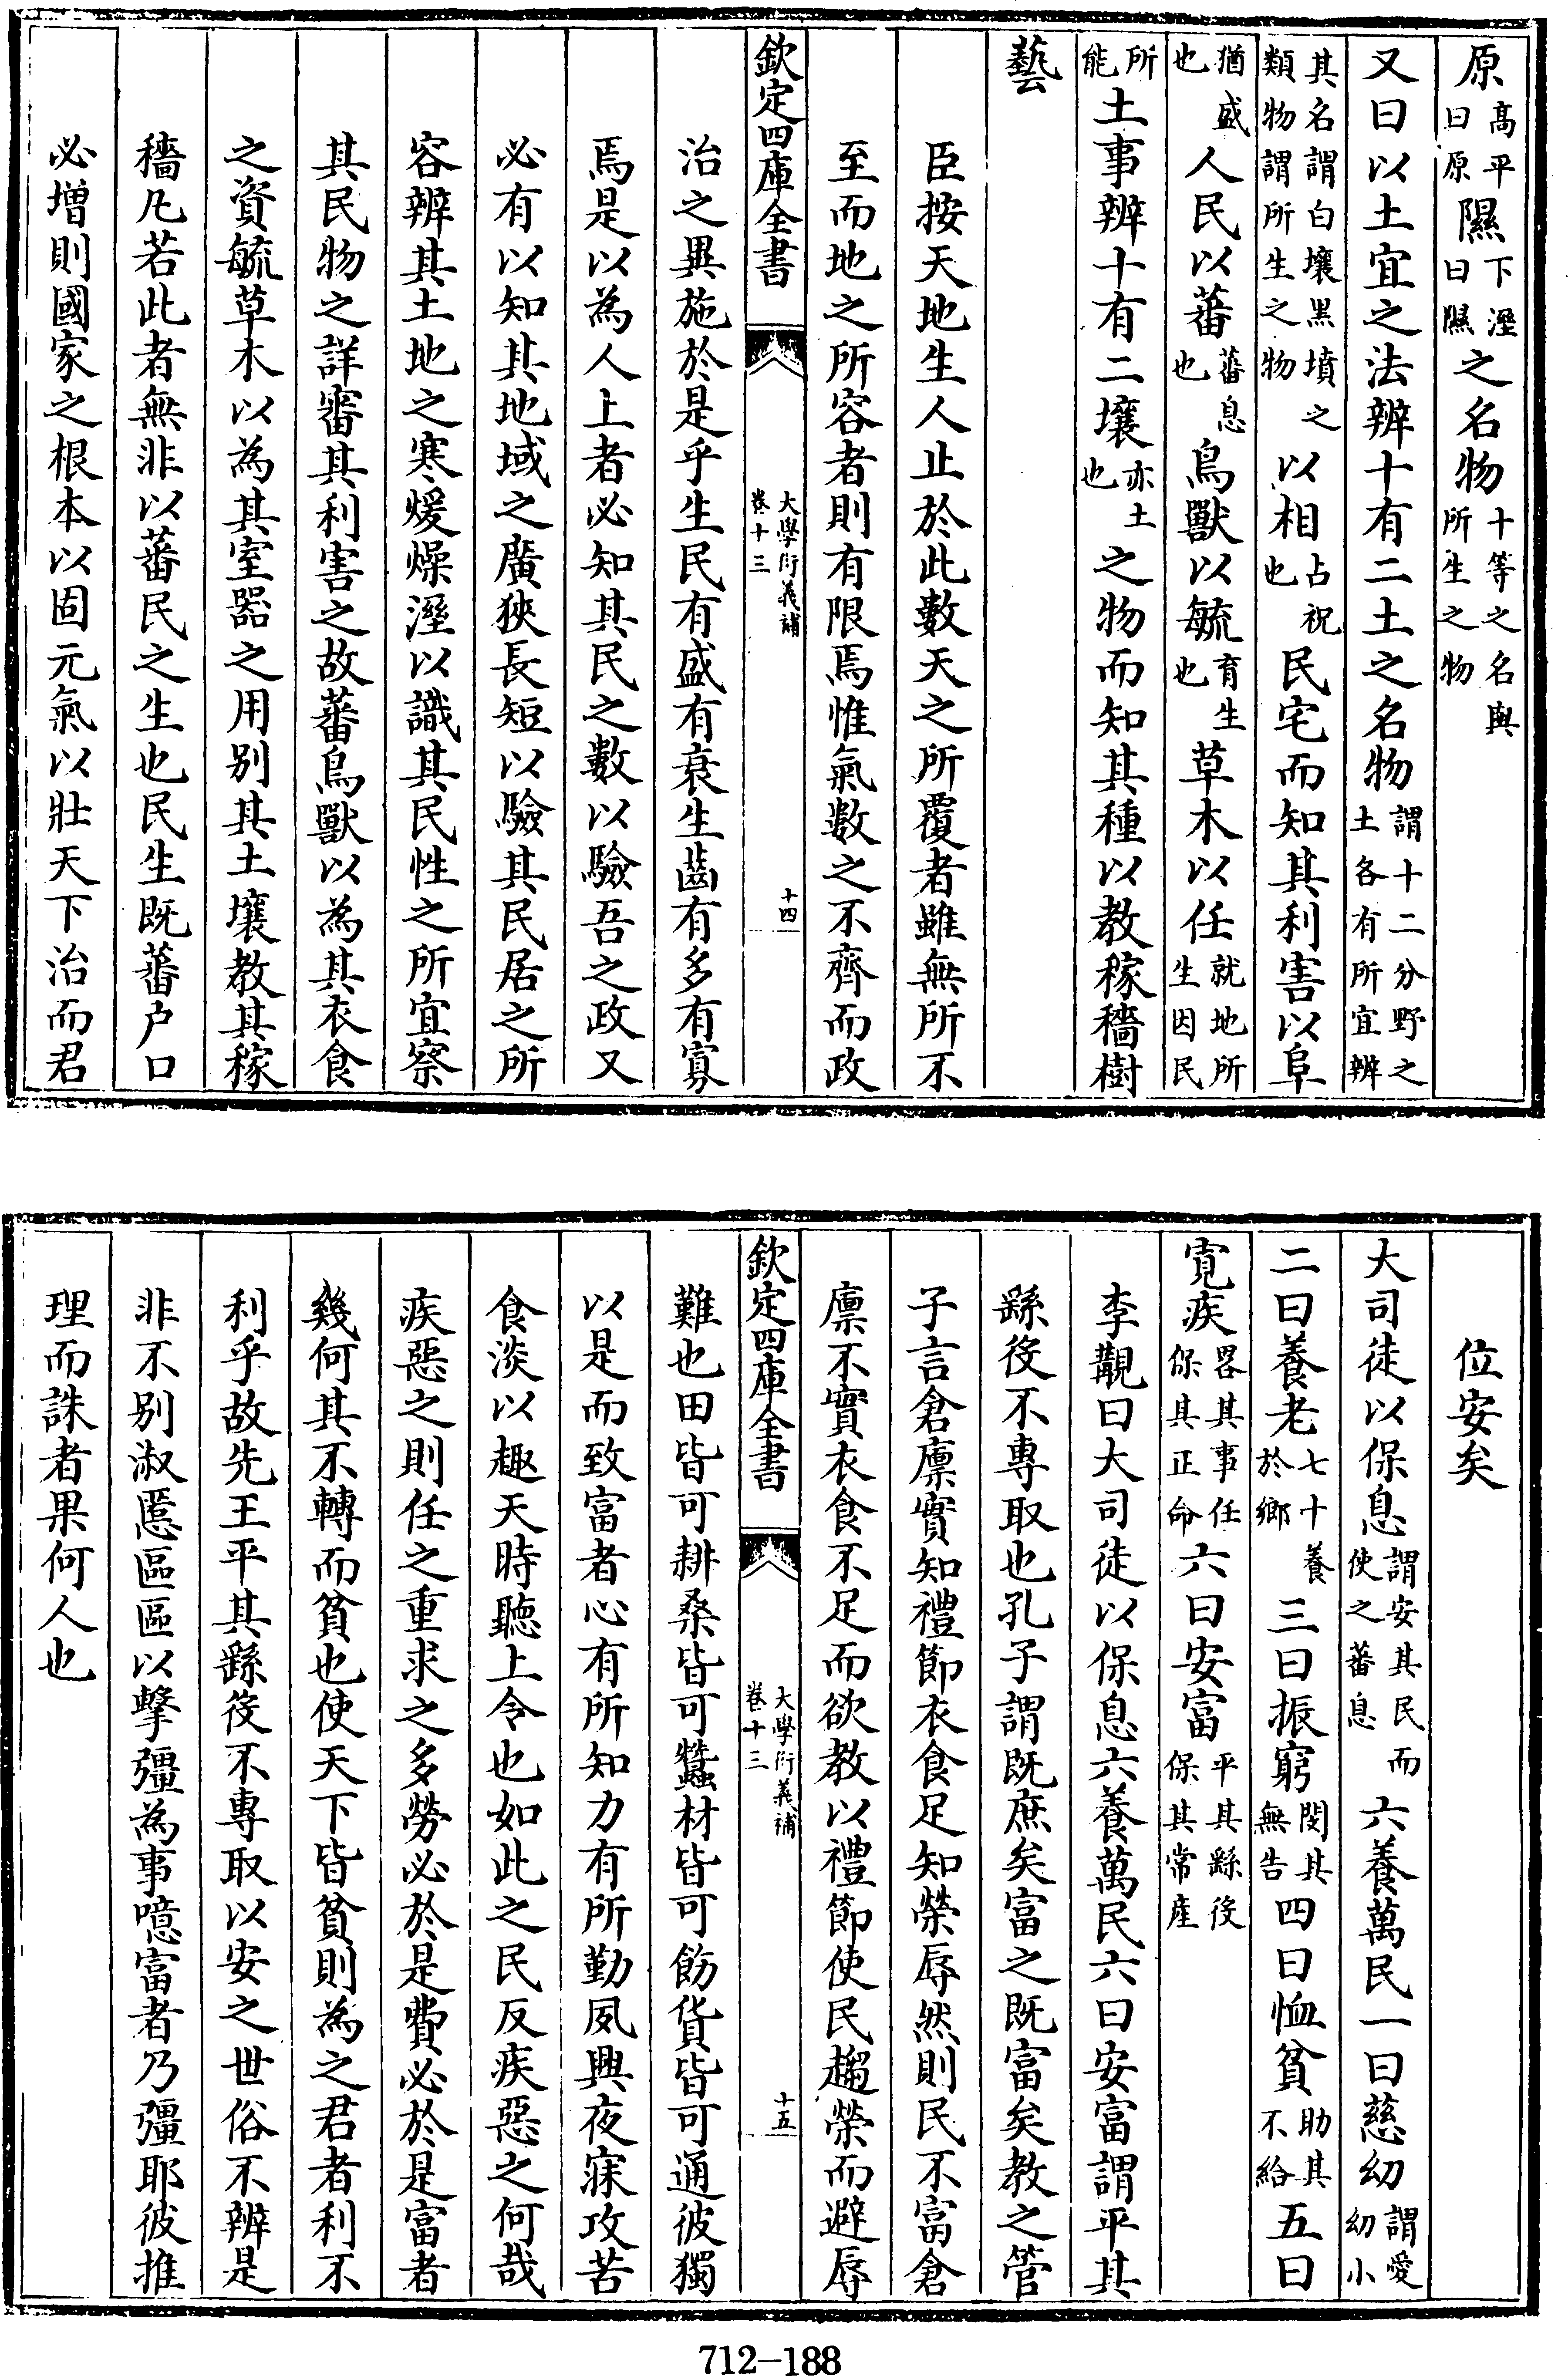 原高平曰原隰下溼曰隰之名物十等之名與所生之物
又曰以土宜之法辨十有二土之名物謂十二分野之土各有所宜辨
其名謂白壤黑墳之類物謂所生之物以相占祝也民宅而知其利害以阜
猶盛也人民以蕃蕃息也鳥獸以毓育生也草木以任就地所生因民
所能土事辨十有二壤亦土也之物而知其種以教稼穡樹
藝
臣按天地生人止於此數天之所覆者雖無所不
至而地之所容者則有限焉惟氣數之不齊而政
欽定四庫全書
大學衍義補
卷十三
十四
治之異施於是乎生民有盛有衰生齒有多有寡
焉是以為人上者必知其民之數以驗吾之政又
必有以知其地域之廣狹長短以驗其民居之所
容辨其土地之寒煖燥溼以識其民性之所宜察
其民物之詳審其利害之故蕃鳥獸以為其衣食
之資毓草木以為其室器之用别其土壤教其稼
穡凡若此者無非以蕃民之生也民生既蕃户口
必增則國家之根本以固元氣以壯天下治而君
位安矣
大司徒以保息謂安其民而使之蕃息六養萬民一曰慈幼謂愛幼小
二曰養老七十養於鄉三曰振窮閔其無告四曰恤貧助其不給五曰
寛疾畧其事任保其正命六曰安富平其繇役保其常産
李覯曰大司徒以保息六養萬民六曰安富謂平其
繇役不專取也孔子謂既庶矣富之既富矣教之管
子言倉廪實知禮節衣食足知榮辱然則民不富倉
廪不實衣食不足而欲教以禮節使民趨榮而避辱
欽定四庫全書
大學衍義補
卷十三
十五
難也田皆可耕桑皆可蠶材皆可飭貨皆可通彼獨
以是而致富者心有所知力有所勤夙興夜寐攻苦
食淡以趣天時聽上令也如此之民反疾惡之何哉
疾惡之則任之重求之多勞必於是費必於是富者
幾何其不轉而貧也使天下皆貧則為之君者利不
利乎故先王平其繇役不專取以安之世俗不辨是
非不别淑慝區區以擊彊為事噫富者乃彊耶彼推
理而誅者果何人也
712-188